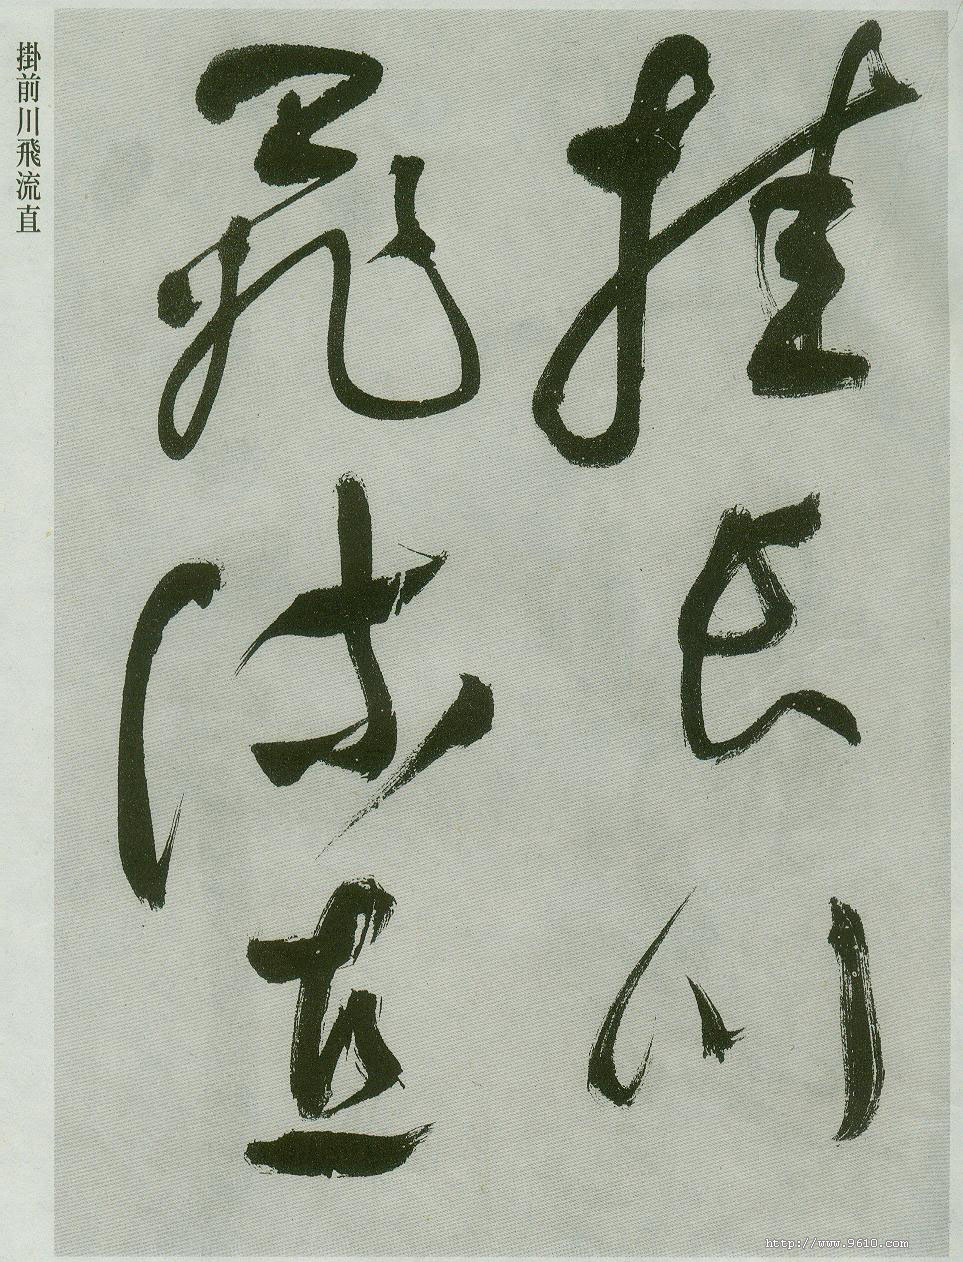 挂長川
飛流直
掛前川飛流直
http://www.9610.com